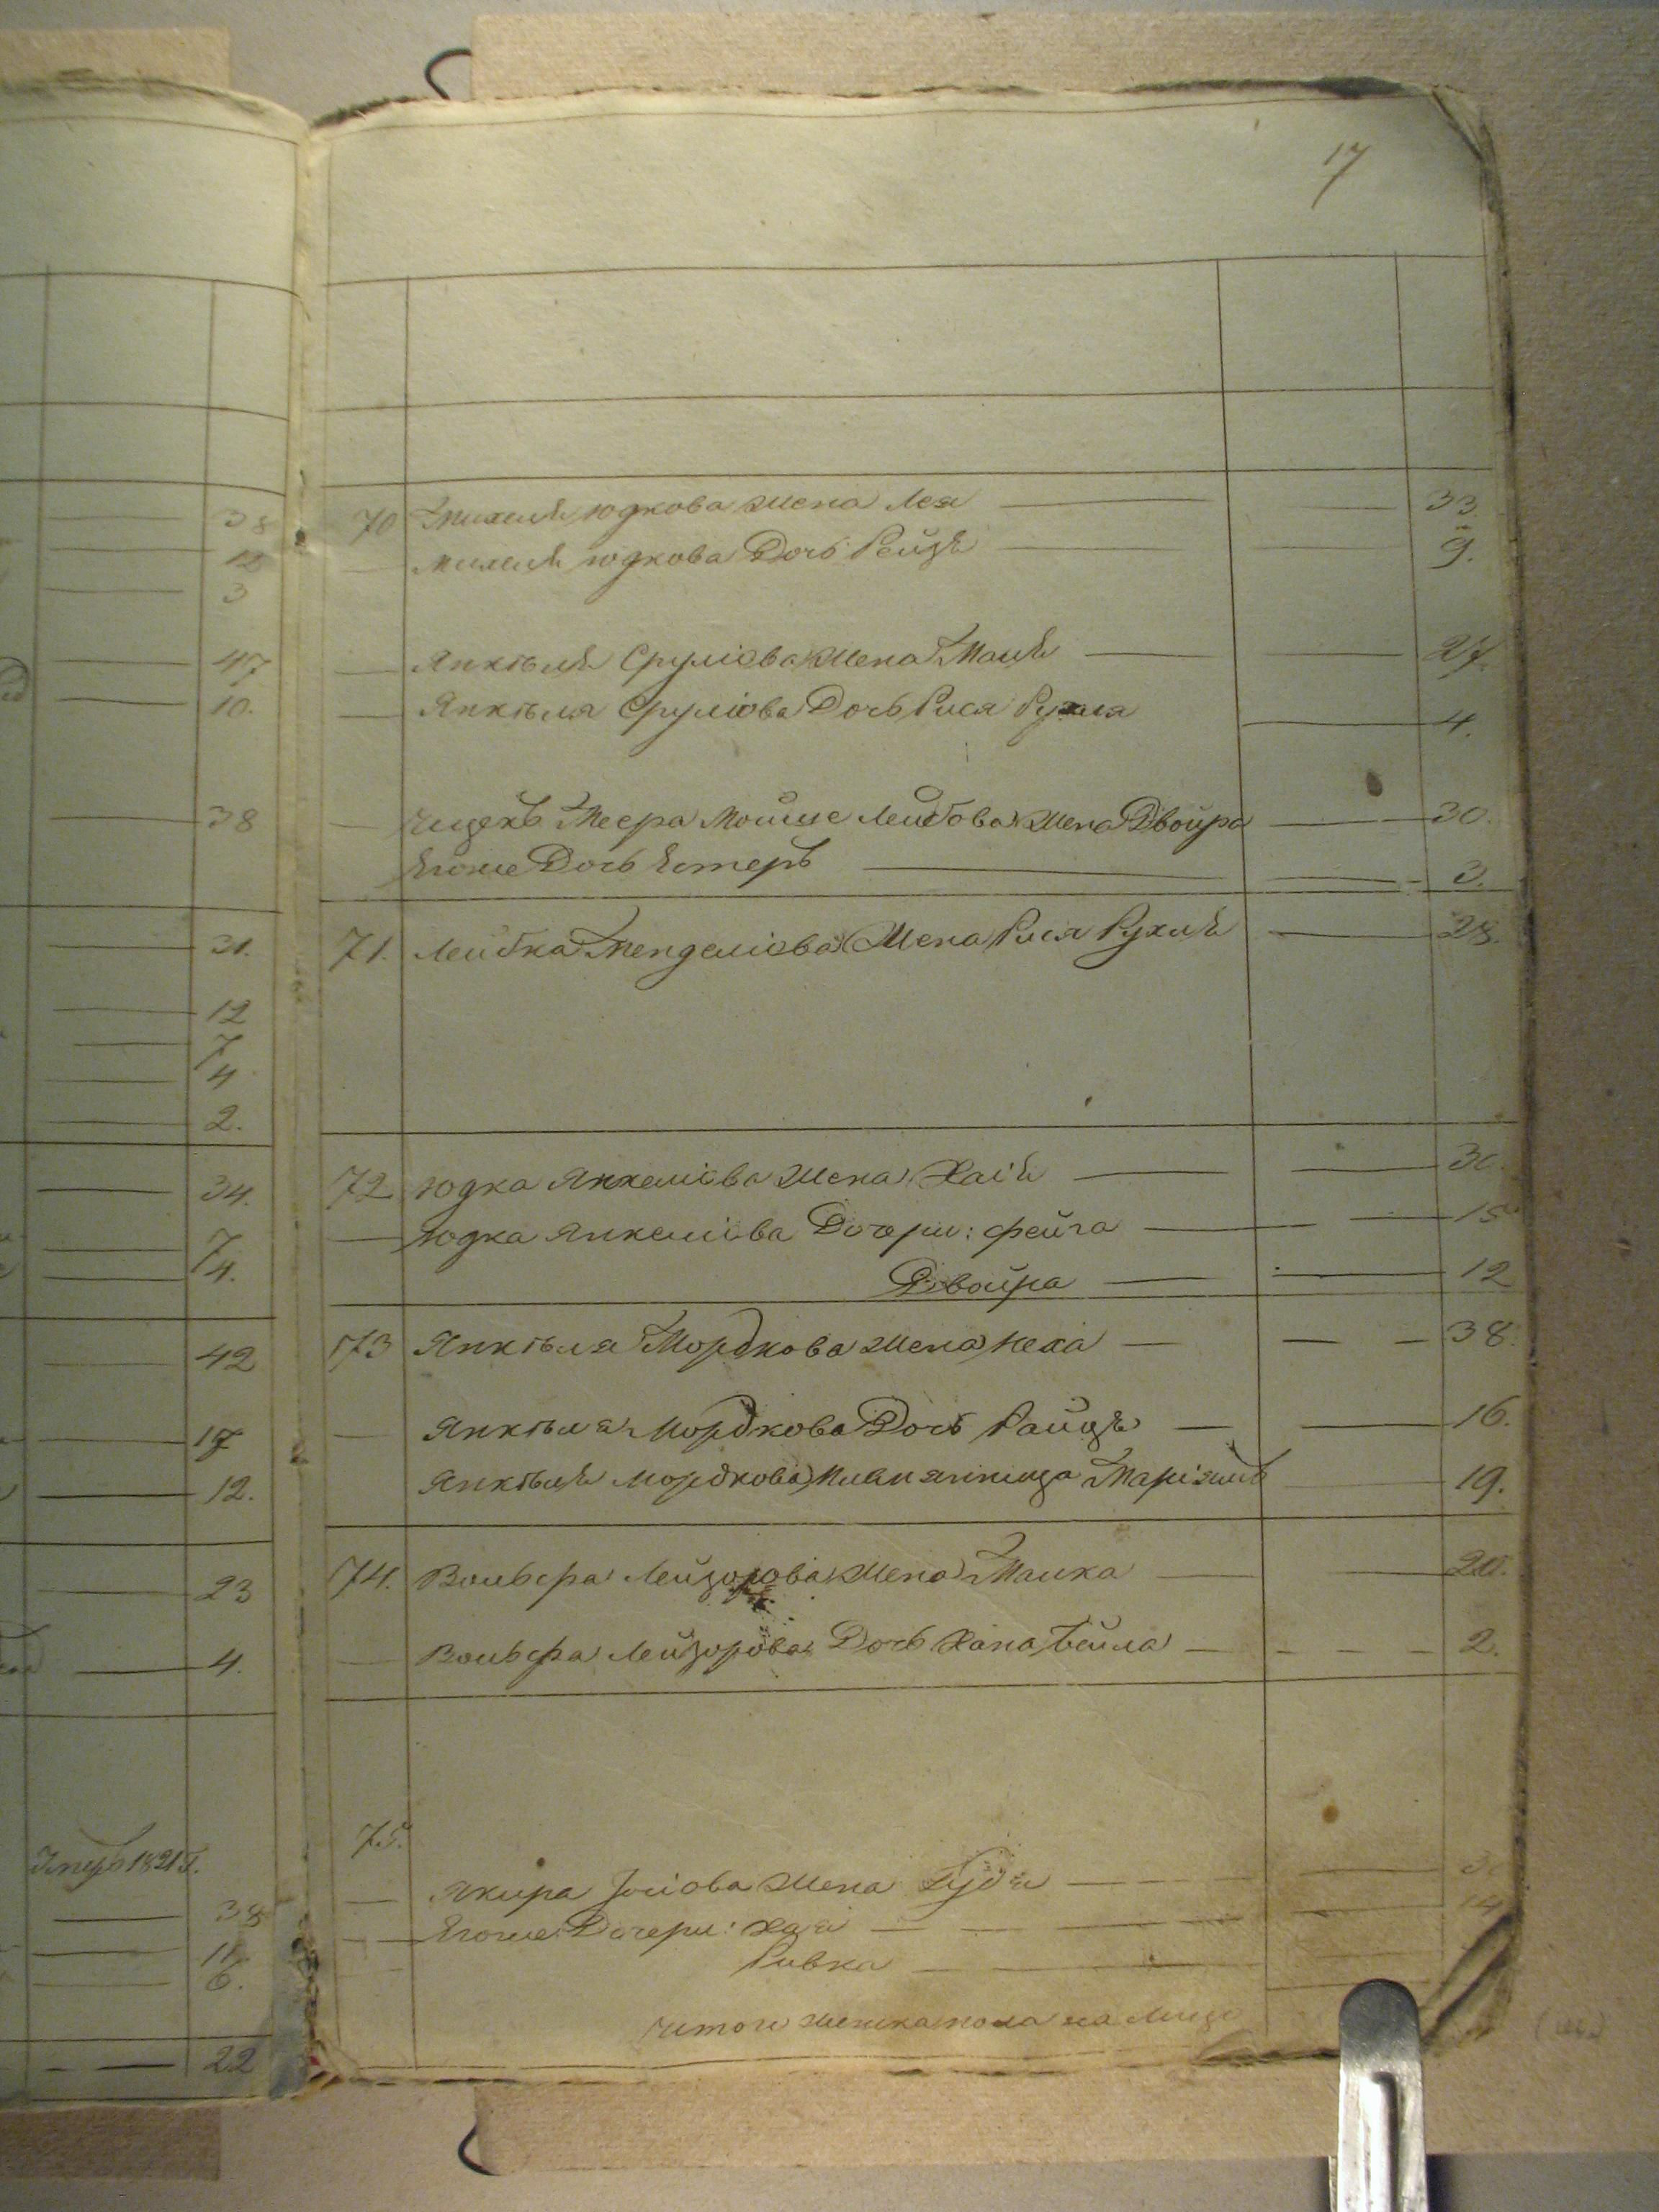 17
38
12
3
47
10.
38
31.
12
7
4
2.
34.
7
4.
42
17
12.
23
4.
1821
38
11
6.
22
70 Михеля Юдкова Жена Лея 33.
Михеля Юдкова Дочь Рейзя 9.
Янкѣля Сруліова Жена Маля 27.
Янкѣля Сруліова Дочь Рися Рухля 4.
Меера Мойше Лейбова Жена Двойра 30.
Егоже Дочь Естеръ 3.
71. Лейбка Менделіова Жена Рися Рухля 28.
72 Юдка Янкеліова Жена Хаія 30.
Юдка Янкеліова Дочери: Фейга 15
Двойра 12
73 Янкѣля Мордкова Жена Неха 38.
Янкѣля Мордкова Дочь Райзя 16.
Янкѣля Мордкова Племянница Маріямъ 19.
74. Вольфа Лейзорова Жена Малка 20.
Вольфа Лейзорова Дочь Хана Бейла 2.
75.
Якира Іосіова Жена
Егоже Дочери: Хая 14
Ривка
Итого женска пола на лицо